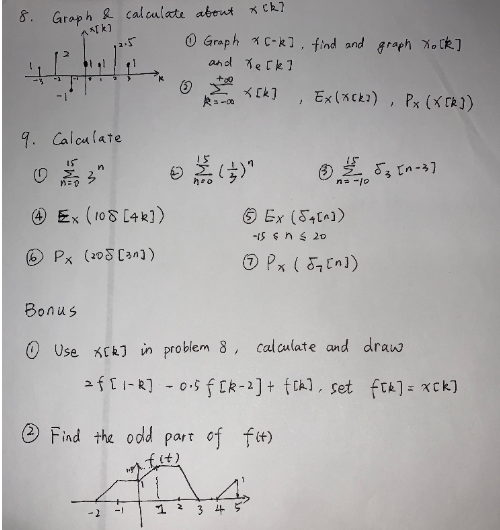 8. Graph & calculate about x[k]
x[k]
1 2 1 1 2.5 1
-3 -2 -1 0 1 2 3 k
-1
① Graph x[-k], find and graph x₀[k]
and xe[k]
② +∞ Σ k=-∞ x[k], Ex(x[k]), Px(x[k])
9. Calculate
① 15 Σ n=0 3ⁿ ② 15 Σ n=0 (1/3)ⁿ ③ 15 Σ n=-10 δ₃[n-3]
④ Ex(10δ[4k]) ⑤ Ex(δ₄[n])
-15 ≤ n ≤ 20
⑥ Px(20δ[3n]) ⑦ Px(δ₇[n])
Bonus
① Use x[k] in problem 8, calculate and draw
2f[1-k] - 0.5f[k-2] + f[k], set f[k] = x[k]
② Find the odd part of f(t)
f(t)
1 1
-2 -1 1 2 3 4 5